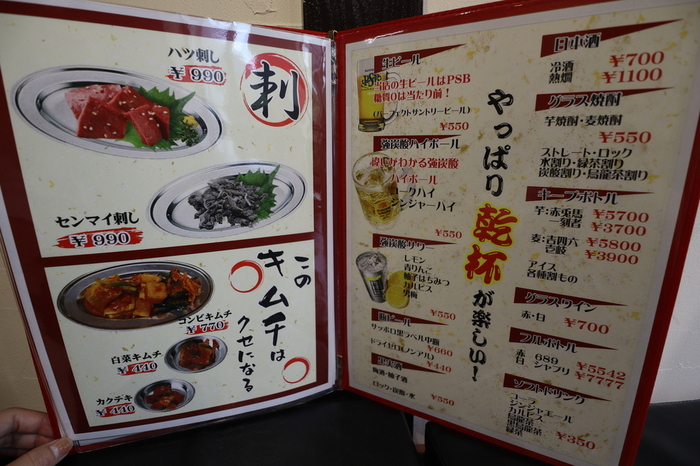 ハツ刺し
¥990
刺
センマイ刺し
¥990
このキムチは
クセになる
コンビキムチ
¥770
白菜キムチ
¥440
カクテキ
¥440
生ビール
当店の生ビールはPSB
糖質0は当たり前!
(パーフェクトサントリービール)
¥550
強炭酸ハイボール
強炭酸
ハイボール
コークハイ
ジンジャーハイ
¥550
強炭酸サワー
レモン
青りんご
柚子はちみつ
カルピス
男梅
¥550
瓶ビール
サッポロ黒ラベル中瓶
¥600
ドライゼロ(ノンアル)
¥440
果実酒
梅酒・柚子酒
ロック・炭酸・水
¥550
やっぱり乾杯が楽しい!
日本酒
冷酒 ¥700
熱燗 ¥1100
グラス焼酎
芋焼酎・麦焼酎
¥550
ストレート・ロック
水割り・緑茶割り
炭酸割り・烏龍茶割り
キープボトル
芋:赤兎馬 ¥5700
一刻者 ¥3700
麦:吉四六 ¥5800
壱岐 ¥3900
アイス
各種割もの
グラスワイン
赤・白 ¥700
フルボトル
赤 689 ¥5542
白 シャブリ ¥7777
ソフトドリンク
コーラ
ジンジャエール
カルピス
烏龍茶
緑茶
¥350